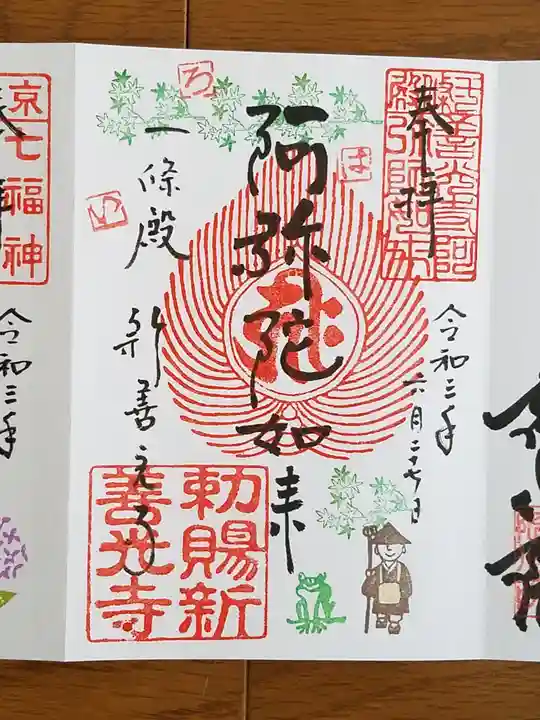 奉拝
令和三年
六月二十七日
阿弥陀如来
一條殿 新善光寺
勅賜新
善光寺
ろ
は
い
京七福神
令和三年